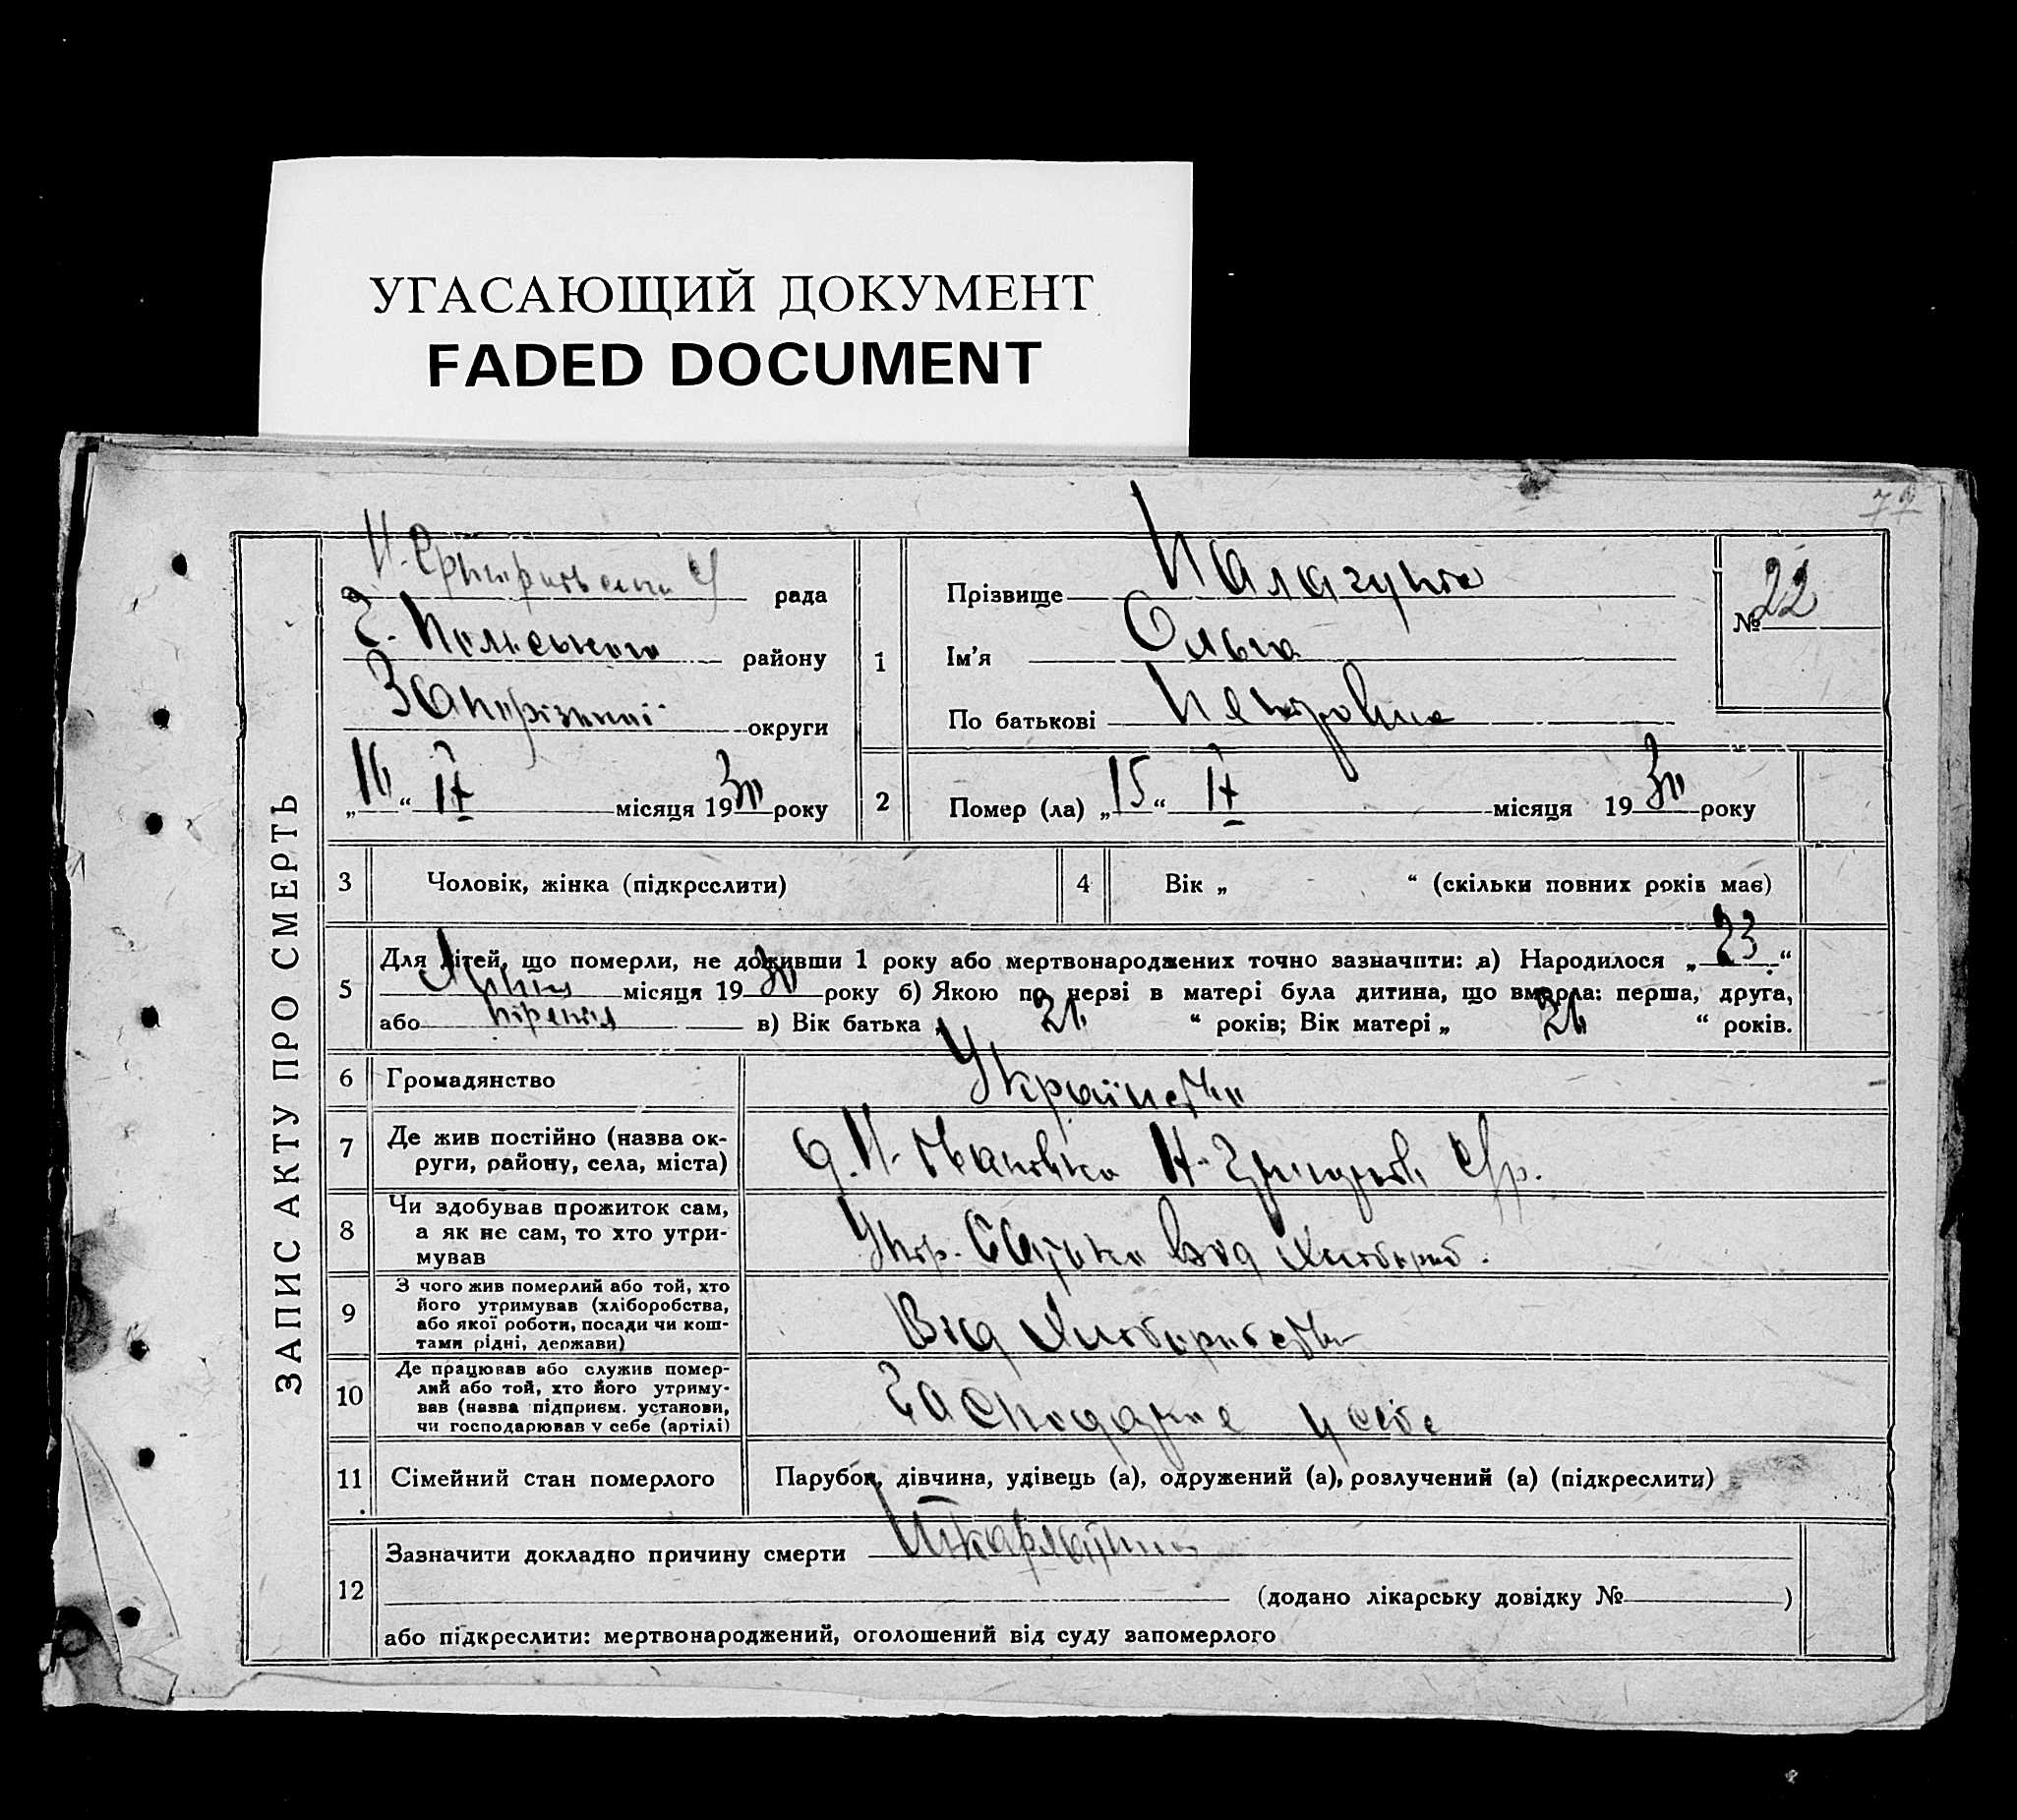 УГАСАЮЩИЙ ДОКУМЕНТ
FADED DOCUMENT
79
ЗАПИС АКТУ ПРО СМЕРТЬ
рада
району
Запорізької округи
„16“ IV місяця 1930 року
1
Прізвище
Ім'я Ольга
По батькові Петровна
№ 22
2
Помер (ла) „15“ IV місяця 1930 року
3
Чоловік, жінка (підкреслити)
4
Вік „ “ (скільки повних років має)
5
Для дітей, що померли, не доживши 1 року або мертвонароджених точно зазначити: а) Народилося „23“
місяця 1930 року б) Якою по черзі в матері була дитина, що вмерла: перша, друга,
або в) Вік батька „ “ років; Вік матері „ “ років.
6
Громадянство
Українська
7
Де жив постійно (назва ок-
руги, району, села, міста)
8
Чи здобував прожиток сам,
а як не сам, то хто утри-
мував
9
З чого жив померлий або той, хто
його утримував (хліборобства,
або якої роботи, посади чи кош-
тами рідні, держави)
Від Хліборобства
10
Де працював або служив помер-
лий або той, хто його утриму-
вав (назва підприєм. установи,
чи господарював у себе (артілі)
у себе
11
Сімейний стан померлого
Парубок, дівчина, удівець (а), одружений (а), розлучений (а) (підкреслити)
12
Зазначити докладно причину смерти Шкарлатина
(додано лікарську довідку № )
або підкреслити: мертвонароджений, оголошений від суду запомерлого